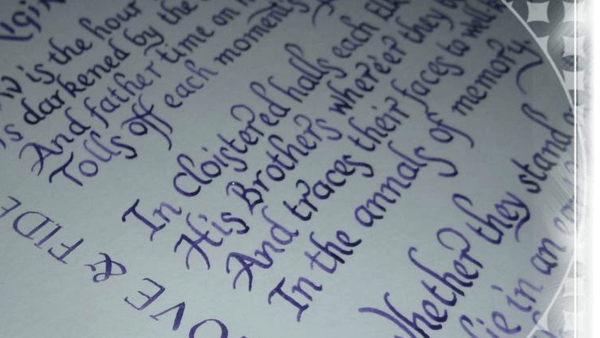 w is the hour
is darkened by the
And father time on
Tolls off each moment
In Cloistered halls each Elk
His Brothers where'er they
And traces their faces to well
In the annals of memory.
Whether they stand
lie in an
OVE & FIDE